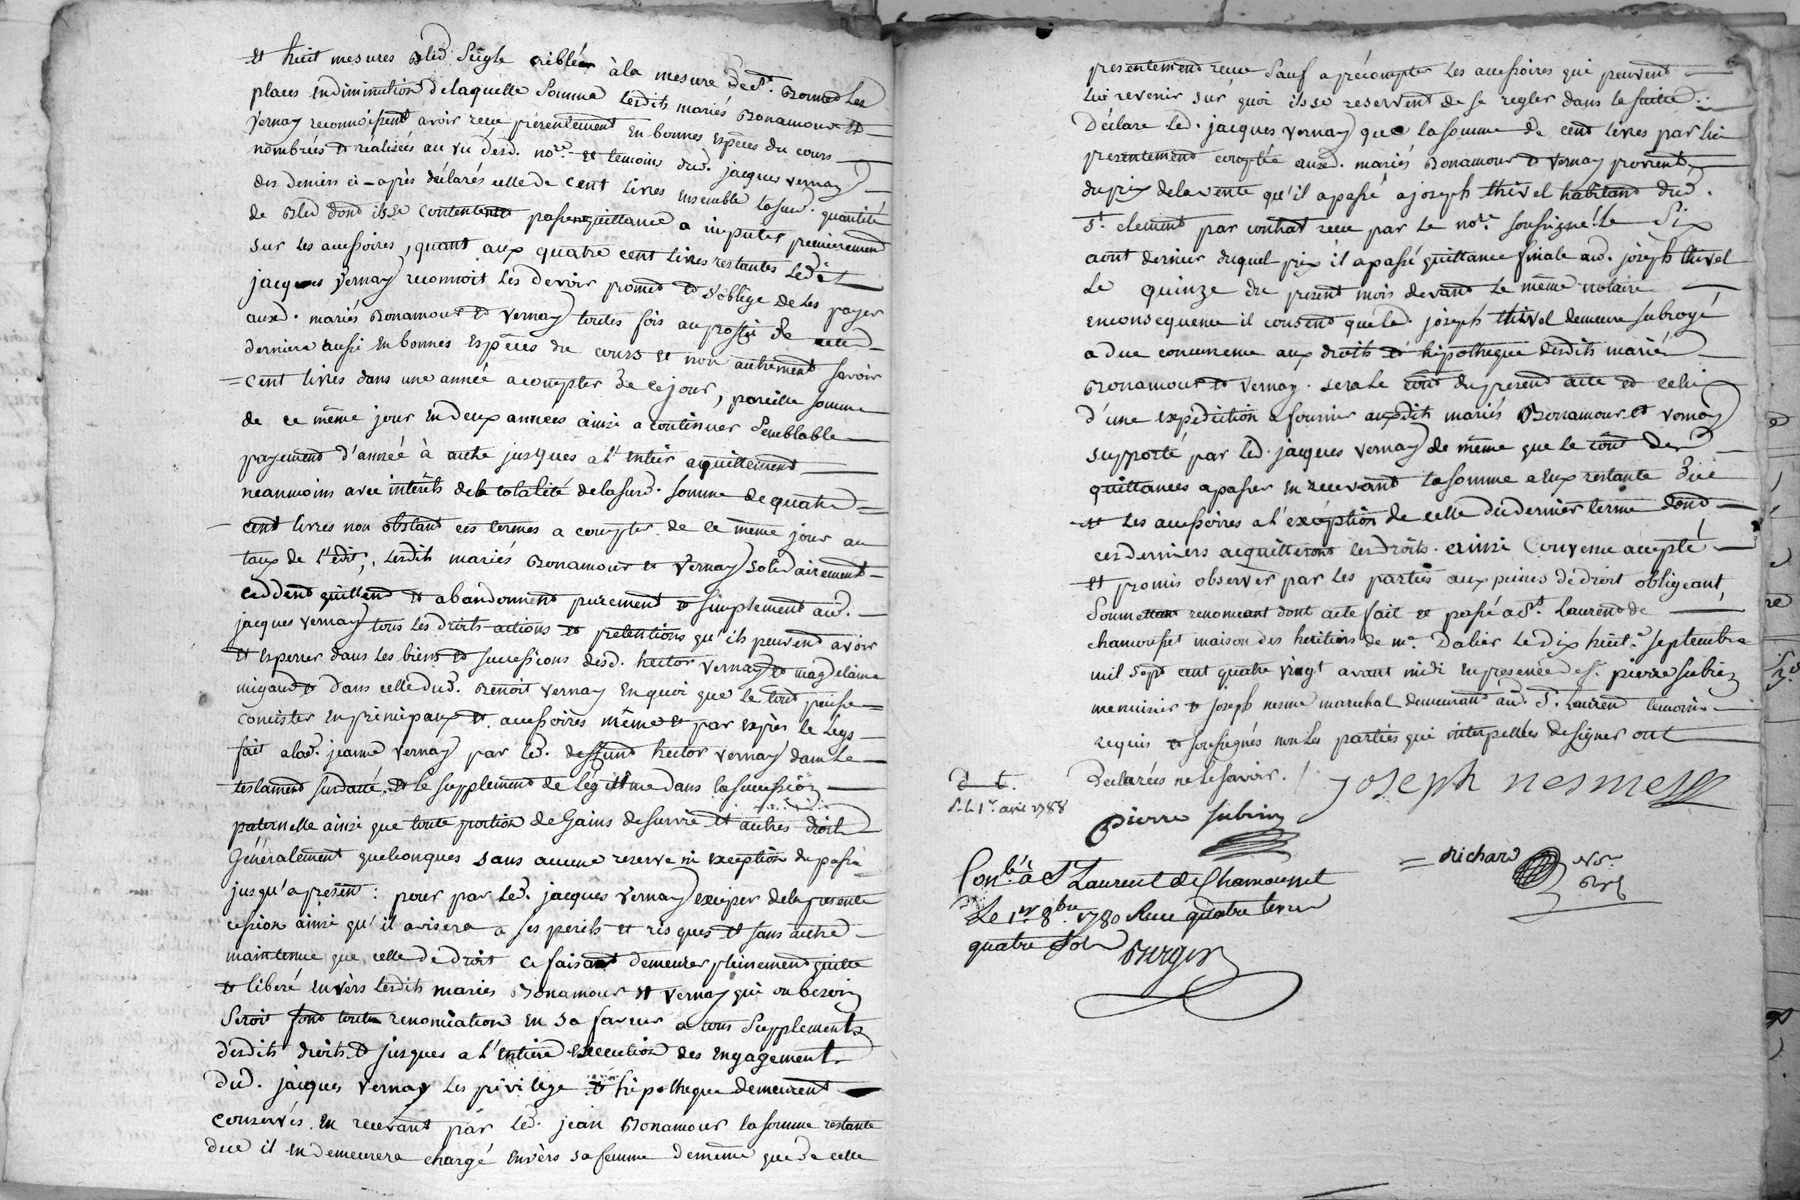 et huit mesures bled seigle criblée à la mesure de St. Bonnet Les
places en diminution de laquelle somme lesdits mariés Bonamour et
Vernay reconnoissent avoir reçu présentement en bonnes espèces du cours
nombrées et realisées au vu desd. nore. et temoins dud. jacques vernay
des deniers ci-après déclarés celle de cent livres ensemble lasusd. quantité
de bled dont ils se contentent passent quittance a imputer premierement
sur les accessoires, quant aux quatre cent livres restantes led.
jacques vernay reconnoit les devoir promet et s'oblige de les payer
auxd. mariés Bonamour et Vernay toutes fois au profit de cette
derniere aussi en bonnes espèces du cours et non autrement savoir
cent livres dans une année a compter de ce jour, pareille somme
de ce même jour en deux années ainsi a continuer semblable
payement d'année à autre jusques a l'entier aquittement
neanmoins avec intérêts de la totalité de lasusd. somme de quatre
cent livres non obstant ces termes a compter de ce même jour au
taux de l'édit, lesdits mariés Bonamour et Vernay solidairement
cèddent quittent et abandonnent purement et simplement aud.
jacques vernay tous les droits actions et pretentions qu'ils peuvent avoir
et esperer dans les biens et successions desd. hector vernay et magdelaine
migaud et dans celle dud. Benoit vernay en quoi que le tout puisse
consister en principaux et accessoires même et par exprès le legs
fait a lad. jeanne vernay par led. deffunt hector vernay dans le
testament susdatté et le supplement de légittime dans la succession
paternelle ainsi que toute portion de gains de survie et autres droits
Généralement quelconques sans aucune reserve ni exception du passé
jusqu'a present : pour par led. jacques vernay exciper de la presente
cession ainsi qu'il avisera a ses perils et risques et sans autre
maintenue que celle de droit ce faisant demeurer pleinement quitte
et liberé envers lesdits mariés Bonamour et vernay qui en besoin
seroit font toute renonciation en sa faveur a tous supplements
desdits droits et jusques a l'entiere execution des engagements
dud. jacques vernay les privilege et hipotheque demeurent
conservés. en recevant par led. jean Bonamour la somme restante
due il en demeurera chargé envers sa femme de même que de celle
presentement reçue sauf a précompter les accessoires qui peuvent
lui revenir sur quoi ils se reservent de se regler dans la suitte :
Déclare led. jacques vernay que la somme de cent livres par lui
presentement comptée auxd. mariés Bonamour et Vernay provient
du prix de la vente qu'il a passé a joseph thivel habitant dud.
St. clement par contrat reçu par le nore. soussigné le six
aout dernier duquel prix il a passé quittance finale aud. joseph thivel
le quinze du present mois devant le même notaire
en consequence il consent que led. joseph thivel demeure subrogé
a due concurrence aux droits et hipotheque desdits mariés
Bonamour et vernay. sera le cout du present acte et celui
d'une expedition a fournir auxdits mariés Bonamour et vernay
supporté par led. jacques vernay de même que le cout des
quittances a passer en recevant la somme a eux restante due
et les accessoires a l'exception de celle du dernier terme dont
ces derniers acquitteront les droits. ainsi convenu accepté
et promis observer par les parties aux peines de droit obligeant,
soumettant renonceant dont acte fait et passé a St. Laurent de
chamousset maison des heritiers de me. Dalier le dix huit. septembre
mil sept cent quatre vingt avant midi en presence de sr. pierre subrin
menuisier et joseph nesme marechal demeurant aud. St. Laurent temoins
requis et soussignés non les parties qui interpellées de signer ont
Declarées ne le savoir. /
joseph nesme
d. t.
d. le 1er. avril 1788
pierre subrin
richard
Conlé à St Laurent de Chamousset
Le 1er 8bre. 1780 Reçu quatre livres
quatre sols
Berger